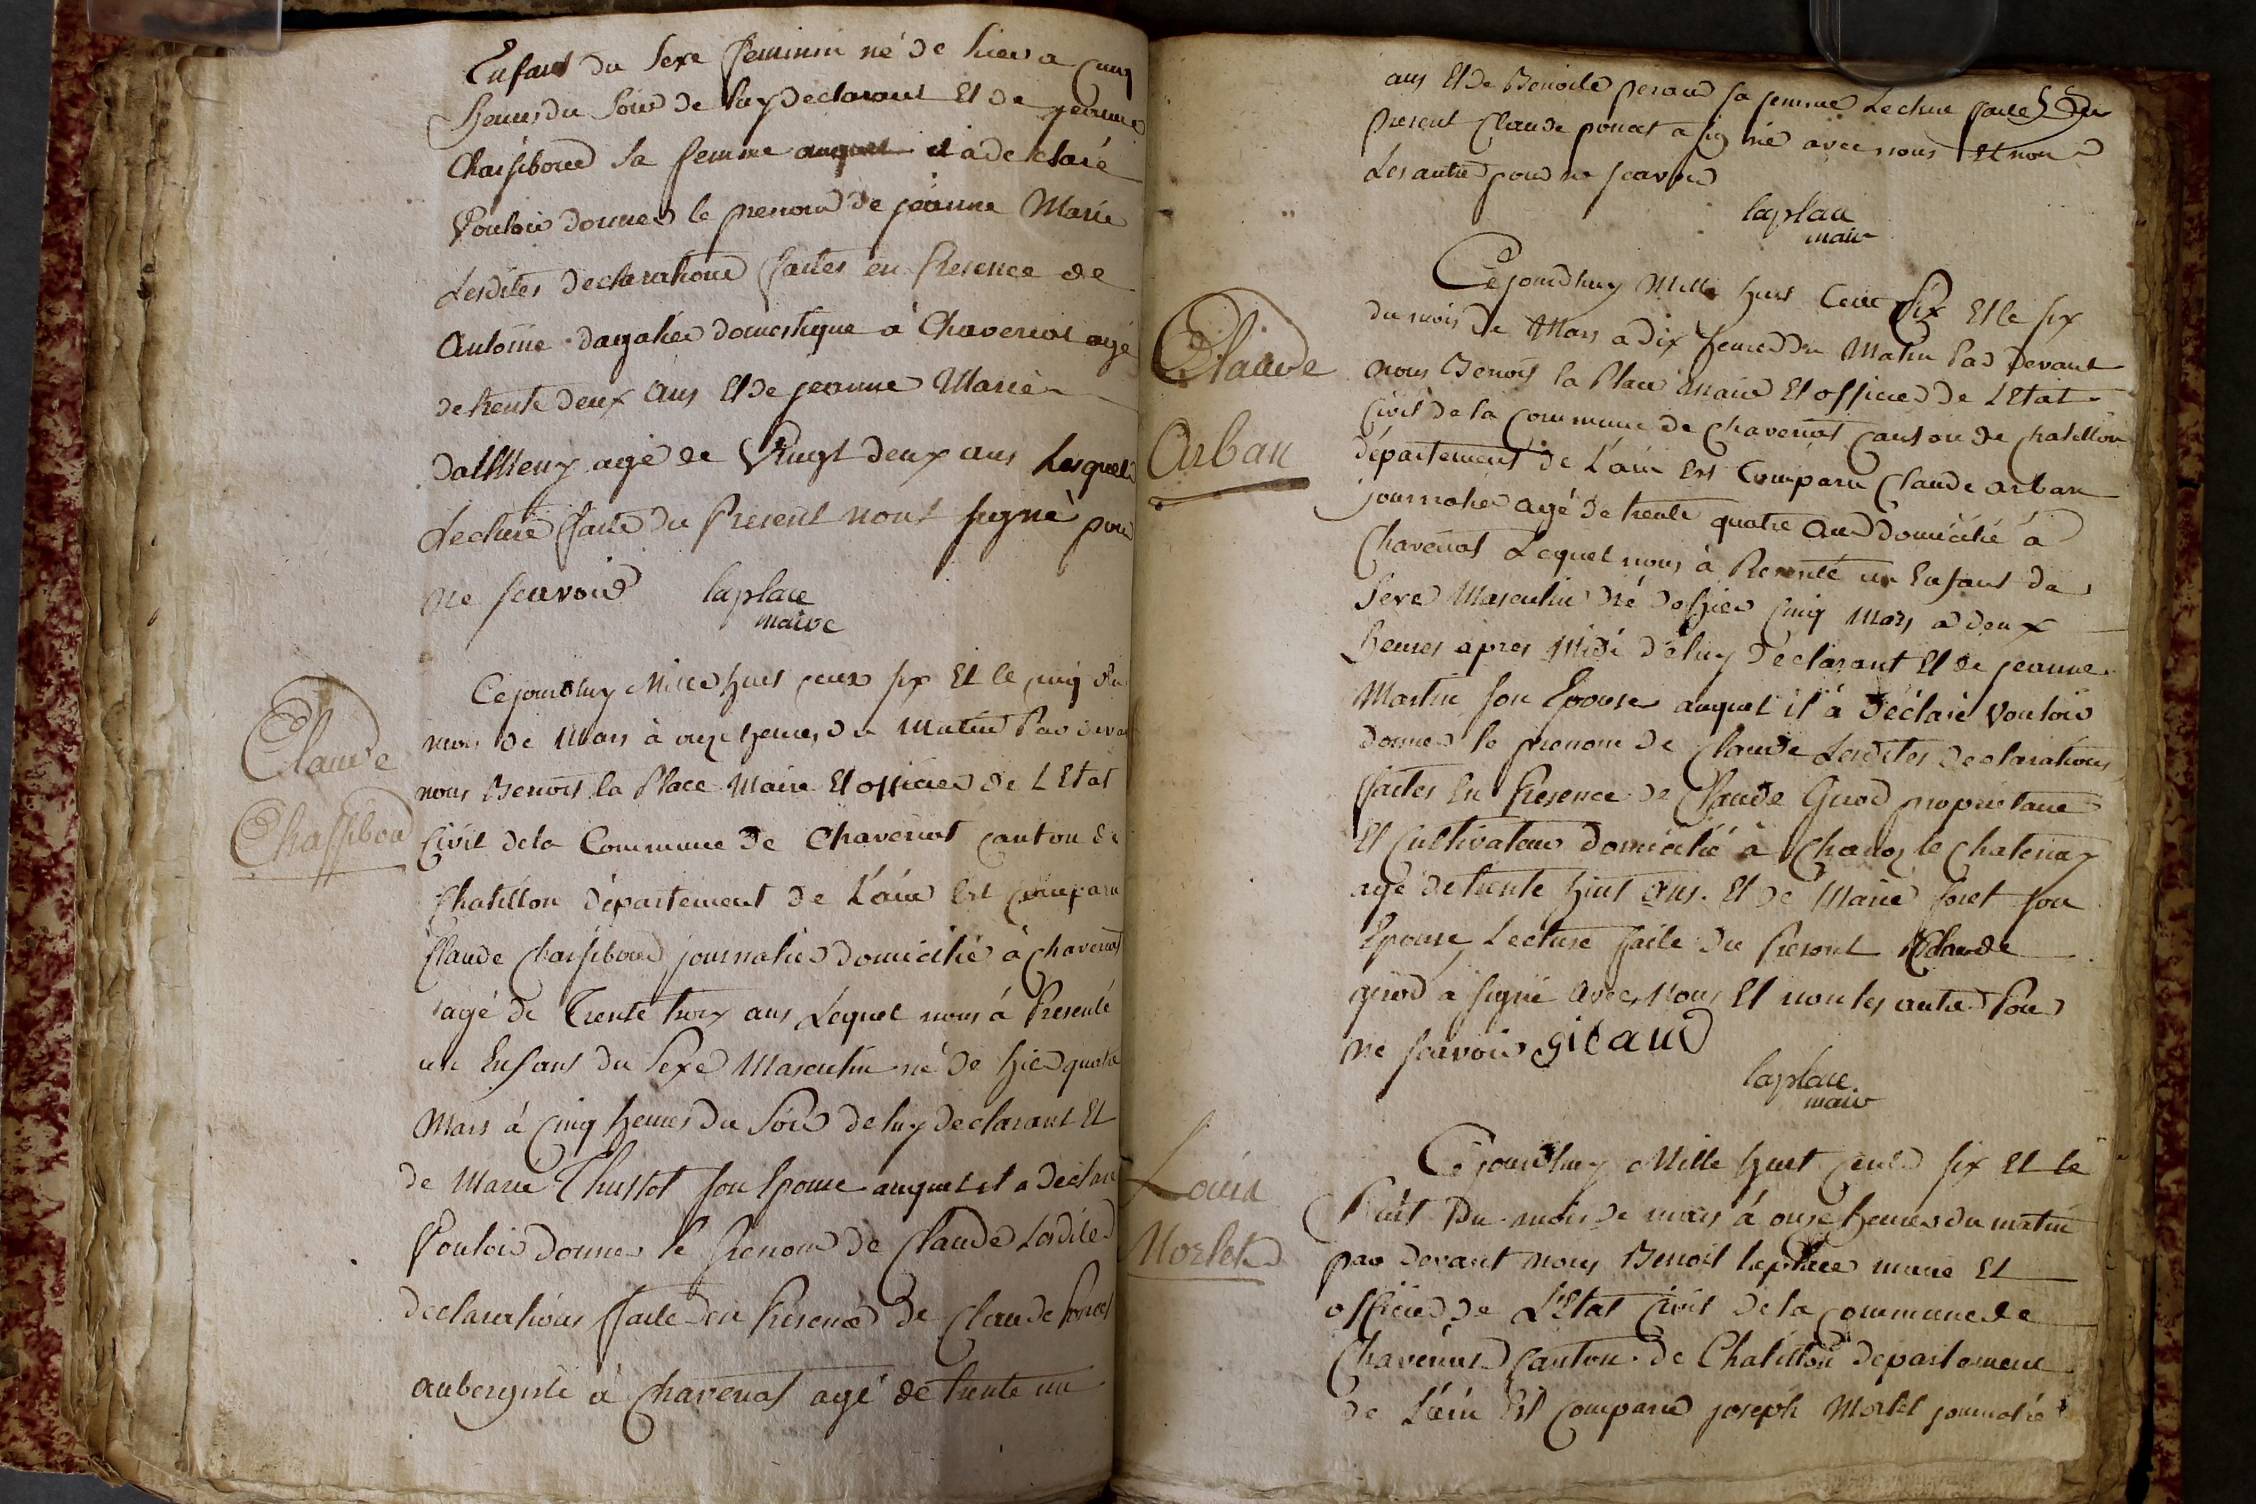 Enfant du Sexe feminin né de hier a cinq
heures du Soir de luy declarant Et de jeanne
Chassiboud Sa femme auquel il a declaré
Vouloir donner le prenom de jeanne Marie
Lesdites declarations faites en Presence de
Antoine domestique à Chaveriat agé
de trente deux ans Et de jeanne Marie
agé de Vingt deux ans Lesquels
Lecture faite du Présent nont signé pour
ne scavoir laplace
maire
Claude
Chassiboud
Cejourdhuy Mille huit cent six Et le cinq du
mois de Mars à onze heures du Matin Par devant
nous Benoit la Place Maire Et officier de L'Etat
Civil de la Commune de Chaveriat canton de
Chatillon département de L'ain Est comparu
Claude Chassiboud journalier domicilié à Chaveriat
agé de Trente trois ans Lequel nous à Presenté
un Enfant du Sexe Masculin né de hier quatre
Mars à cinq heures du Soir de luy declarant Et
de Marie son Epouse auquel il a declaré
Vouloir donner le Prenom de Claude Lesdites
declarations faite en Presence de Claude Poncet
aubergiste à Chaveriat agé de trente un
ans Et de Benoite peraud sa femme Lecture faite du
present Claude poncet a signé avec nous Et non
Les autre pour ne scavoir
laplace
maire
Claude
Arban
Cejourdhuy Mille huit Cent Six Et le six
du mois de Mars a dix heures du Matin Par devant
nous Benoit la Place maire Et officier de L'Etat
Civil de la Commune de Chaveriat canton de Chatillon
département de L'ain Est Comparu Claude arban
journalier agé de trente quatre ans domicilié à
Chaveriat Lequel nous à Presenté un Enfant du
Sexe Masculin né de hier cinq Mars a deux
heures apres Midi de luy déclarant Et de jeanne
Martin son Epouse auquel il à déclaré Vouloir
donner le prenom de Claude Lesdites declarations
faites En Presence de Claude Girod proprietaire
Et Cultivateur domicilié à Chanoz le Chatenay
agé de trente huit ans. Et de Marie foret son
Epouse, Lecture faite du Present Claude
girod a signé avec Nous Et non les autre Pour
ne scavoir giraud
laplace
maire
Louis
Morlet
Cejourdhuy Mille huit cent six Et le
huit Du mois de mars à onze heures du matin
par devant nous Benoit laplace maire Et
officier de L'Etat Civil de la commune de
Chaveriat canton de Chatillon departement
de L'ain Est comparu joseph Morlet journalier